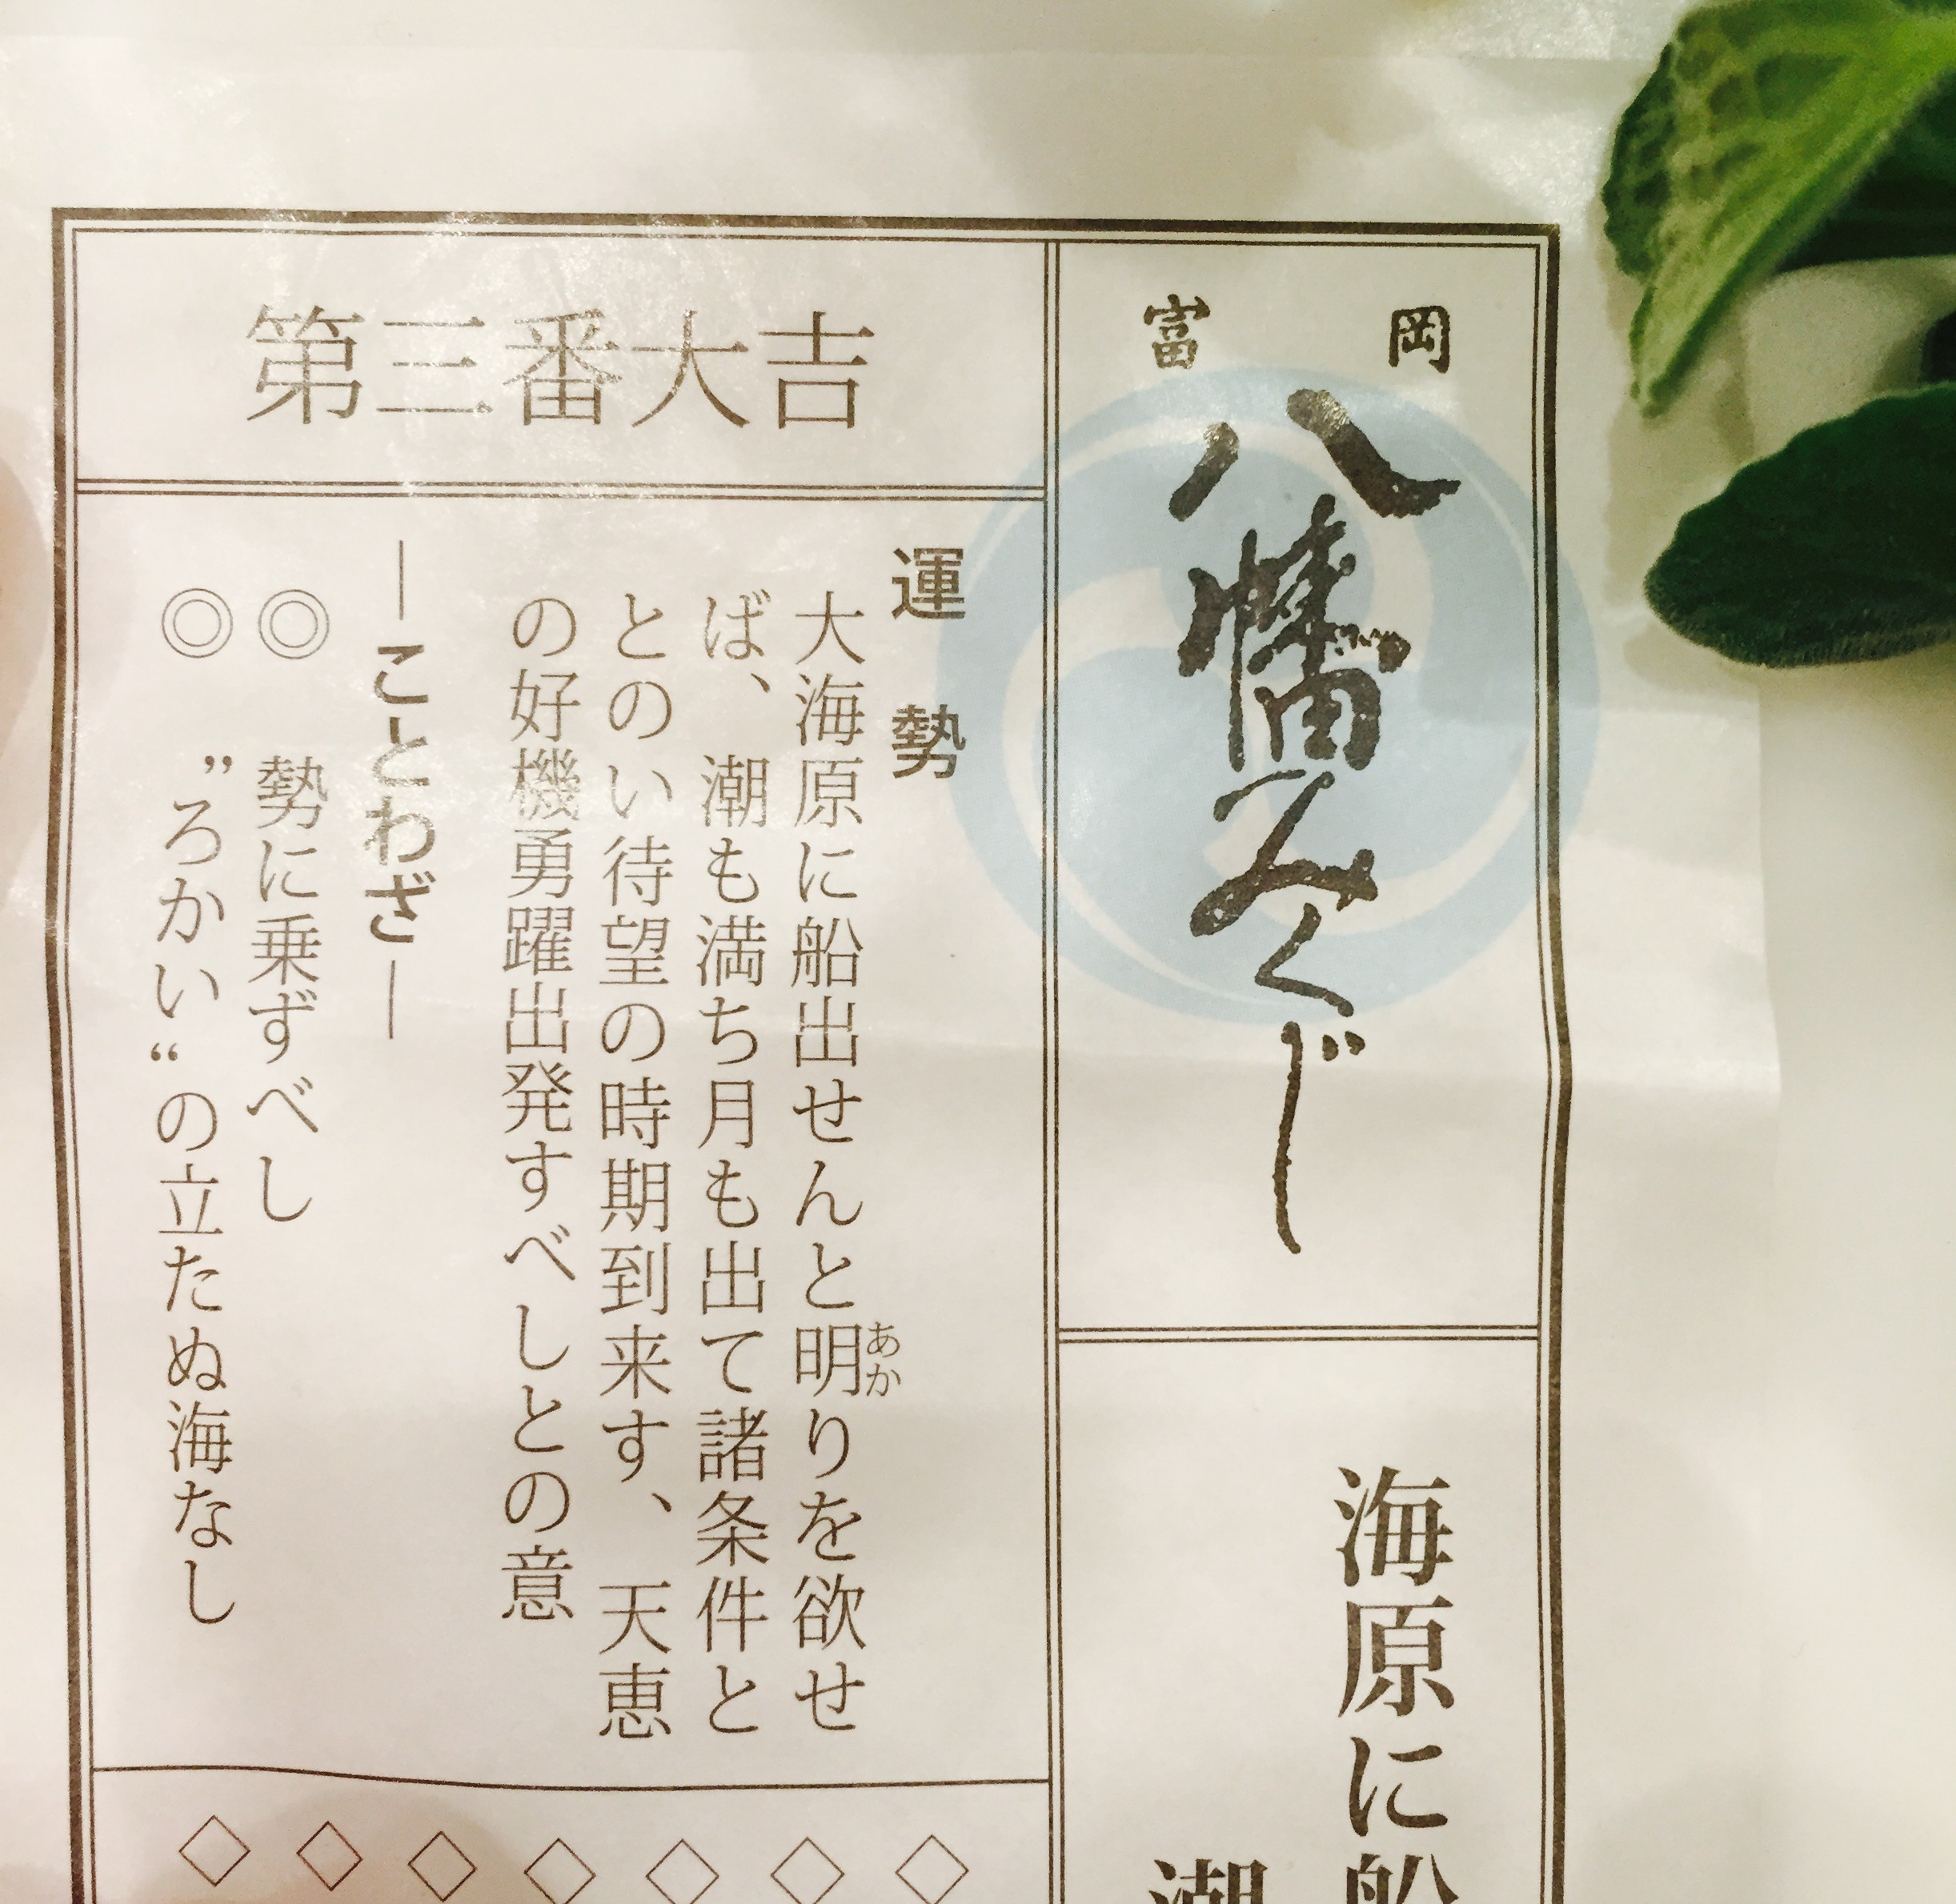 富岡
八幡みくじ
海原に船
潮
第三番大吉
運勢
大海原に船出せんと明りを欲せ
あか
ば、潮も満ち月も出て諸条件と
とのい待望の時期到来す、天恵
の好機勇躍出発すべしとの意
―ことわざ―
◎ 勢に乗ずべし
◎ ”ろかい“の立たぬ海なし